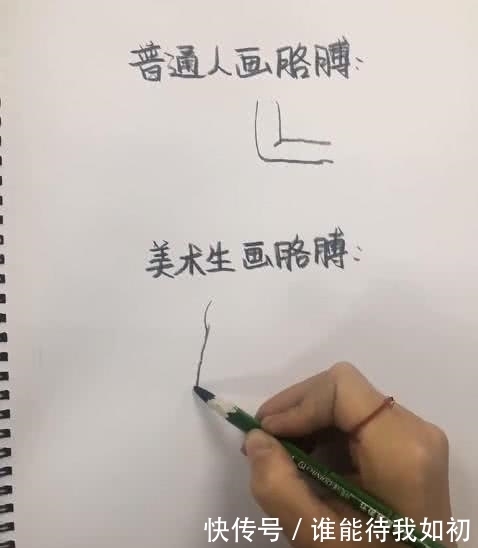 普通人画胳膊：
美术生画胳膊：
快传号 / 谁能待我如初